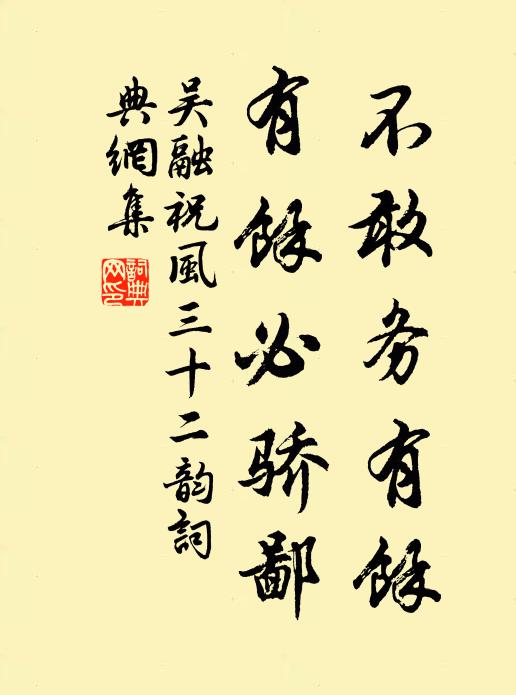 不敢务有馀
有馀必骄鄙
吴融祝風三十二韵詞
典網集
詞典
网印